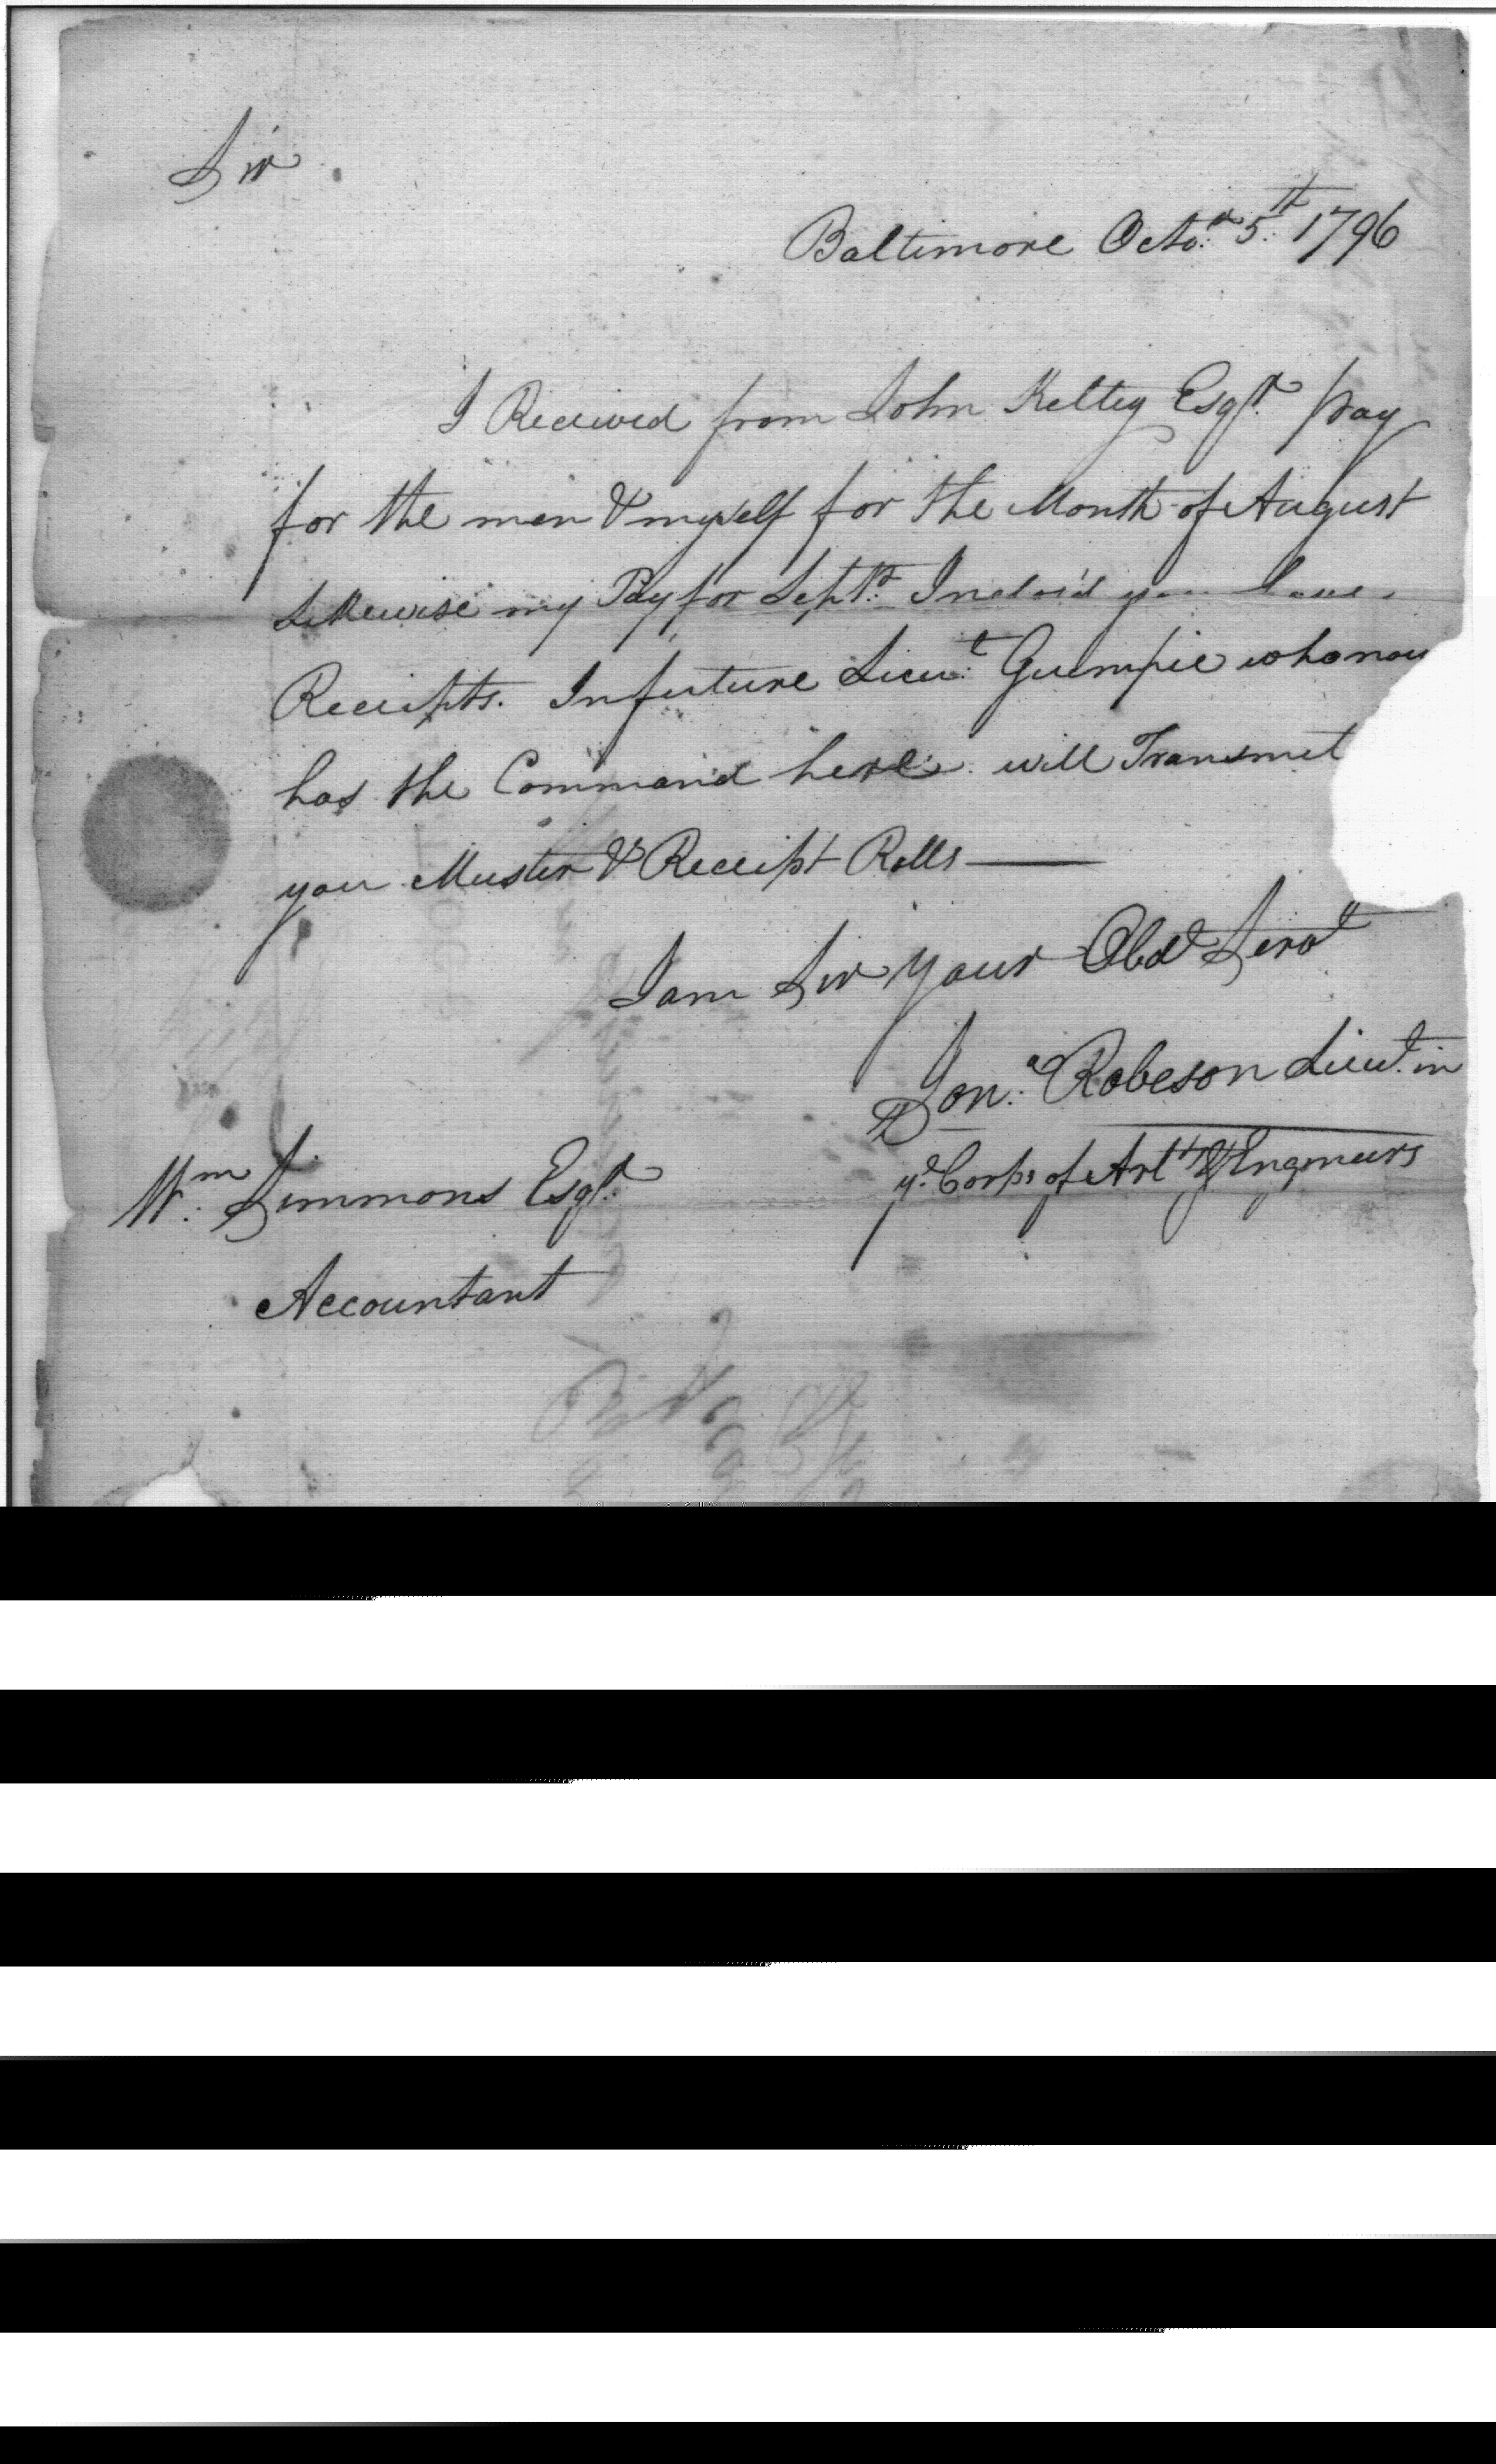 Sir
Baltimore Octo.r 5th 1796
I Received from John Kelty Esqr. pay
for the men & myself for the Month of August
Likewise my Pay for Septr. Inclos'd you have
Receipts. In future Lieut. Guimpie who now
has the Command here will Transmit
you Muster & Receipt Rolls
I am Sir your Obdt Servt
Jona. Robeson Lieut. in
ye. Corps of Arty & Engineers
Wm. Simmons Esqr.
Accountant